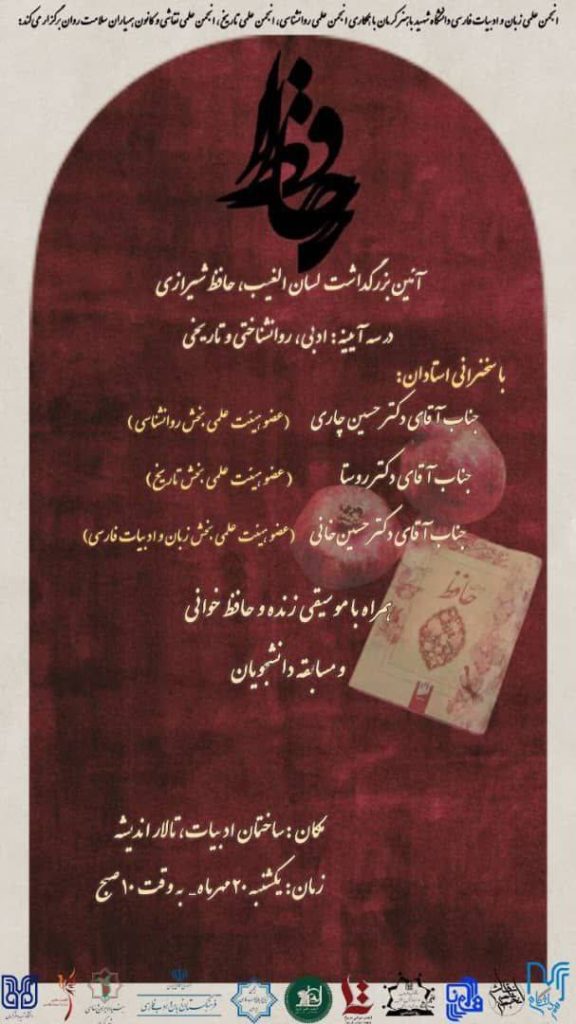 انجمن علمی زبان و ادبیات فارسی دانشگاه شهید باهنر کرمان با همکاری انجمن علمی روانشناسی، انجمن علمی تاریخ، انجمن علمی نقاشی و کانون همیاران سلامت روان برگزار می‌کند:
حافظ
آئین بزرگداشت لسان الغیب، حافظ شیرازی
در سه آیینهٔ: ادبی، روانشناختی و تاریخی
با سخنرانی استادان:
جناب آقای دکتر حسین چاری (عضو هیئت علمی بخش روانشناسی)
جناب آقای دکتر روستا (عضو هیئت علمی بخش تاریخ)
جناب آقای دکتر حسین خانی (عضو هیئت علمی بخش زبان و ادبیات فارسی)
حافظ
همراه با موسیقی زنده و حافظ خوانی
و مسابقه دانشجویان
مکان: ساختمان ادبیات، تالار اندیشه
زمان: یکشنبه ۲۰ مهرماه_ به وقت ۱۰ صبح